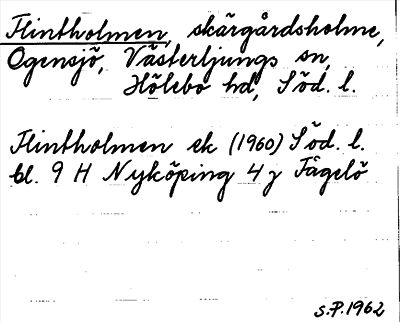 Flintholmen, skärgårdsholme,
Ogensjö, Västerljungs sn,
Hölebo hd, Söd. l.
Flintholmen ek (1960) Söd. l.
bl. 9 H Nyköping 4 j Fågelö
S.P. 1962